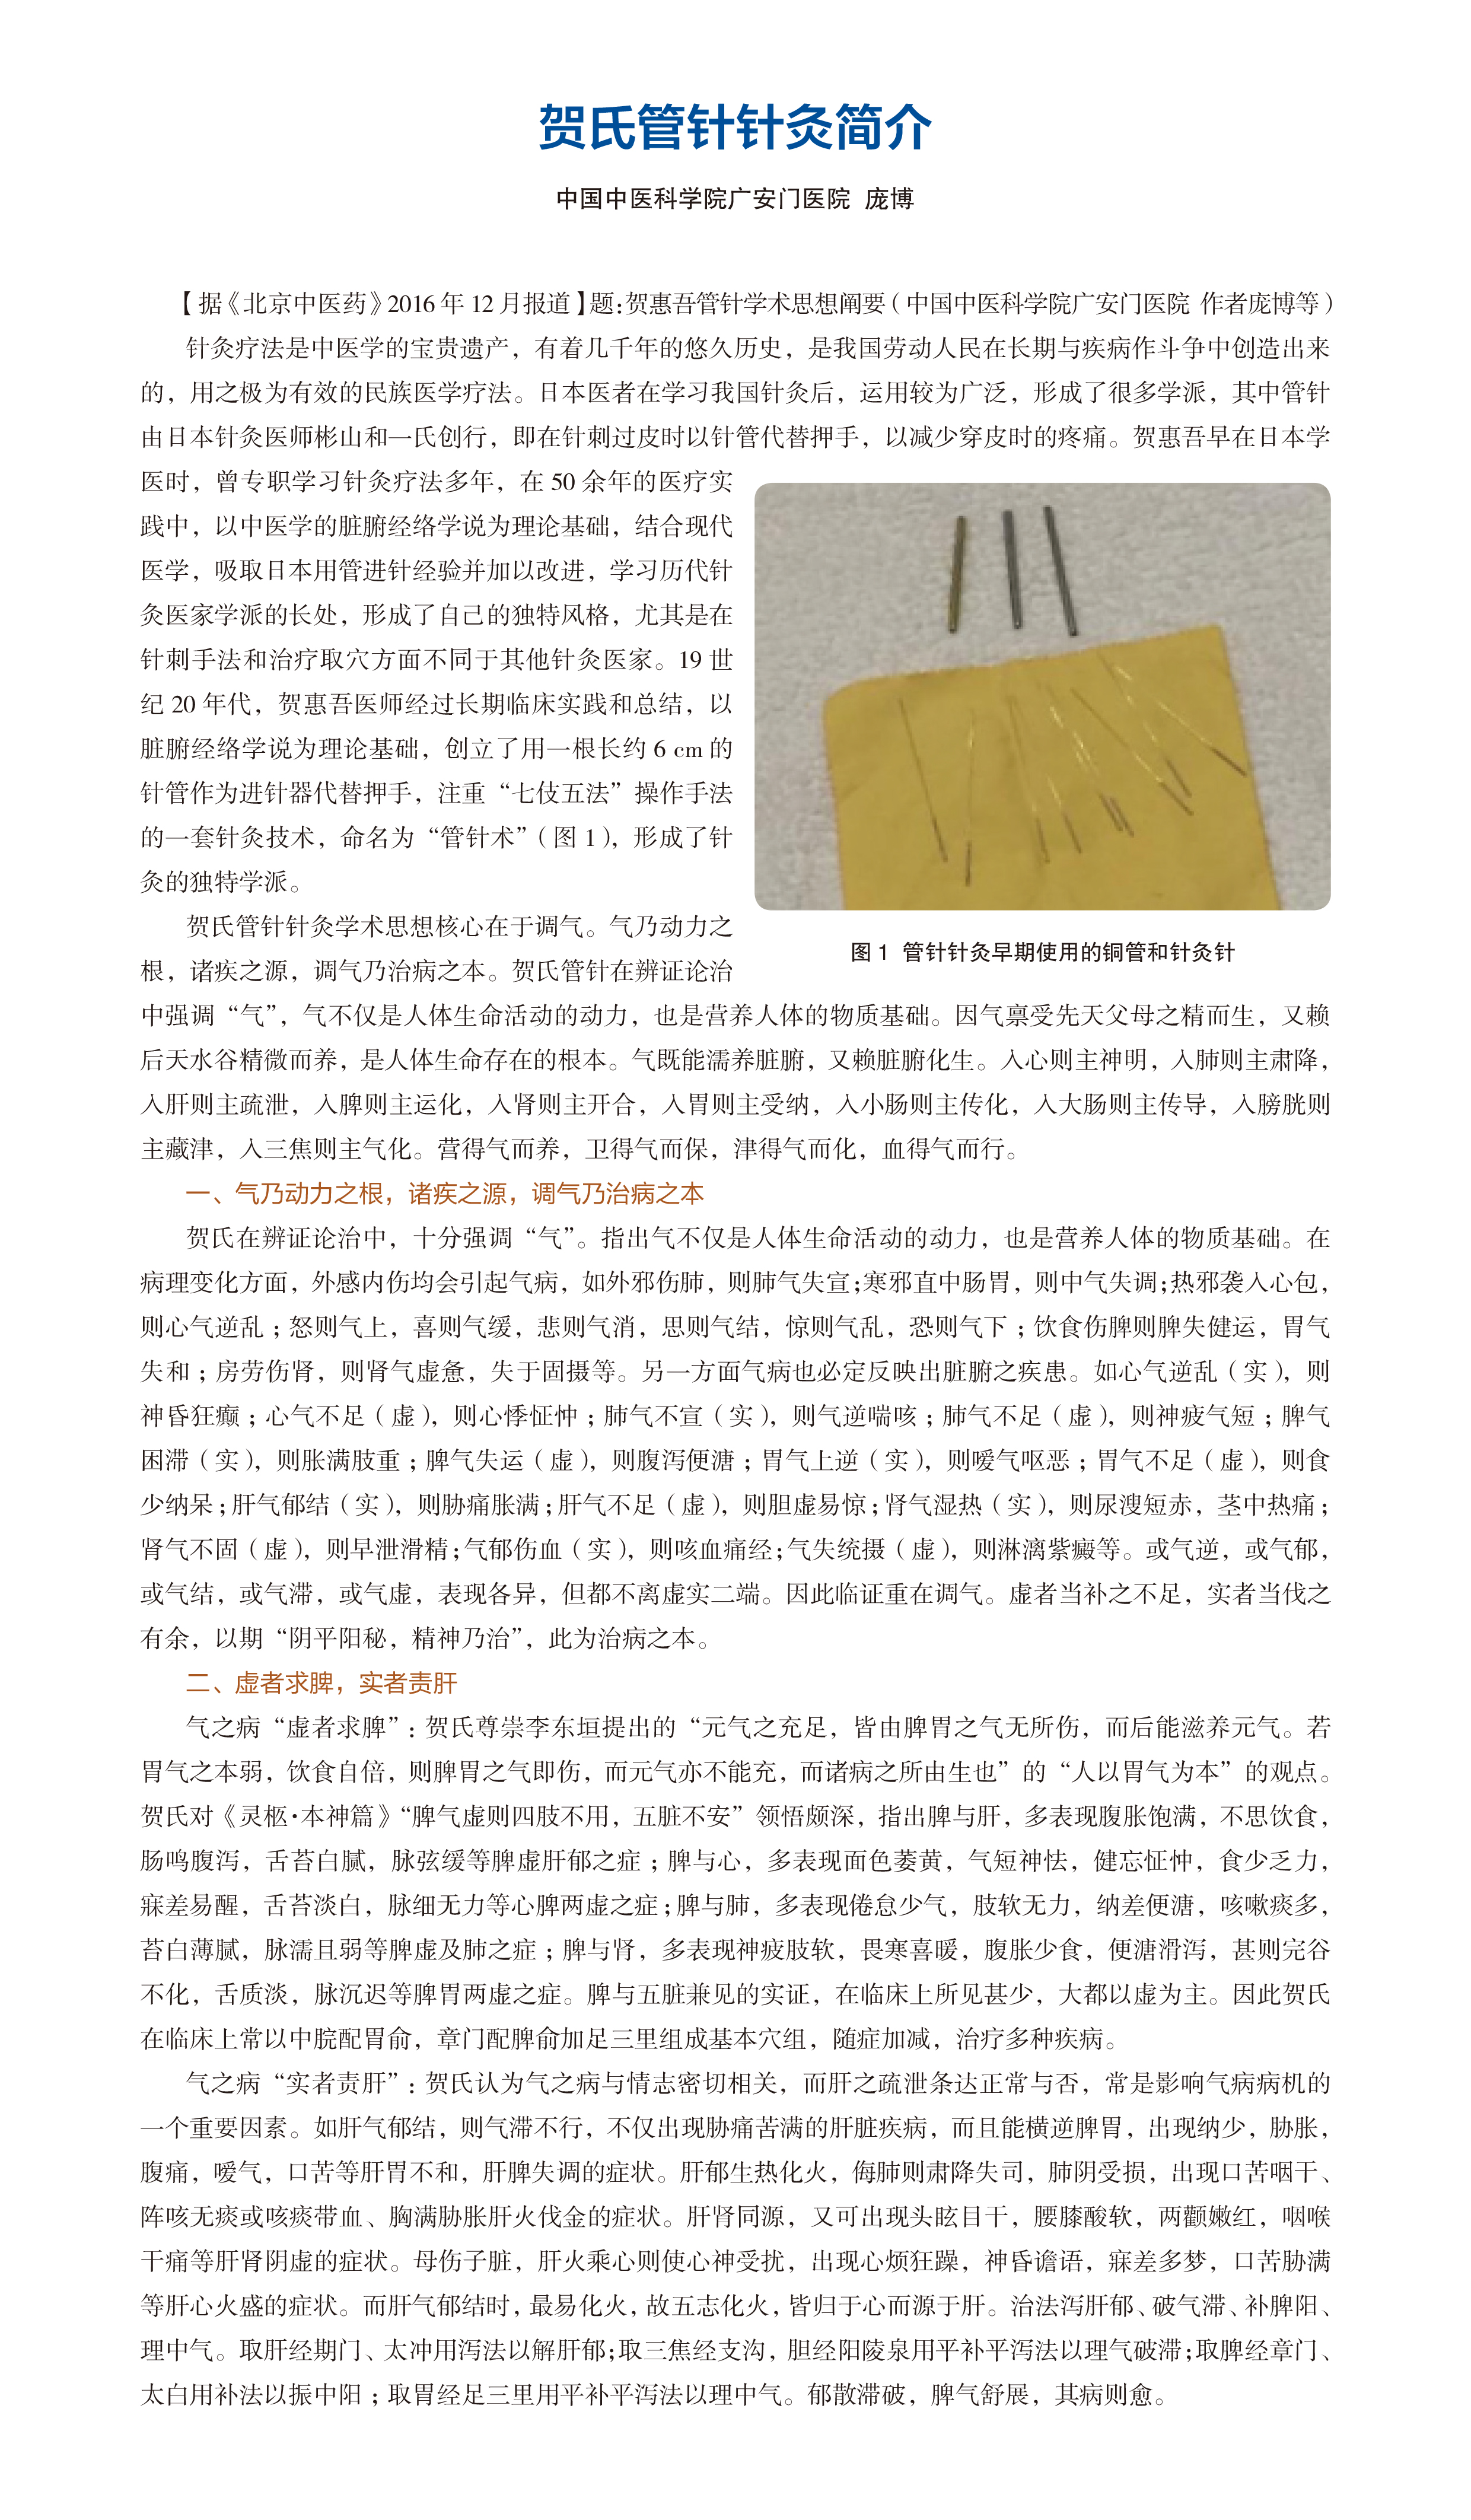 贺氏管针针灸简介
中国中医科学院广安门医院 庞博
【据《北京中医药》2016 年 12 月报道】题:贺惠吾管针学术思想阐要（中国中医科学院广安门医院 作者庞博等）
针灸疗法是中医学的宝贵遗产，有着几千年的悠久历史，是我国劳动人民在长期与疾病作斗争中创造出来
的，用之极为有效的民族医学疗法。日本医者在学习我国针灸后，运用较为广泛，形成了很多学派，其中管针
由日本针灸医师彬山和一氏创行，即在针刺过皮时以针管代替押手，以减少穿皮时的疼痛。贺惠吾早在日本学
医时，曾专职学习针灸疗法多年，在 50 余年的医疗实
践中，以中医学的脏腑经络学说为理论基础，结合现代
医学，吸取日本用管进针经验并加以改进，学习历代针
灸医家学派的长处，形成了自己的独特风格，尤其是在
针刺手法和治疗取穴方面不同于其他针灸医家。19 世
纪 20 年代，贺惠吾医师经过长期临床实践和总结，以
脏腑经络学说为理论基础，创立了用一根长约 6 cm 的
针管作为进针器代替押手，注重“七伎五法”操作手法
的一套针灸技术，命名为“管针术”（图 1），形成了针
灸的独特学派。
图 1 管针针灸早期使用的铜管和针灸针
贺氏管针针灸学术思想核心在于调气。气乃动力之
根，诸疾之源，调气乃治病之本。贺氏管针在辨证论治
中强调“气”，气不仅是人体生命活动的动力，也是营养人体的物质基础。因气禀受先天父母之精而生，又赖
后天水谷精微而养，是人体生命存在的根本。气既能濡养脏腑，又赖脏腑化生。入心则主神明，入肺则主肃降，
入肝则主疏泄，入脾则主运化，入肾则主开合，入胃则主受纳，入小肠则主传化，入大肠则主传导，入膀胱则
主藏津，入三焦则主气化。营得气而养，卫得气而保，津得气而化，血得气而行。
一、气乃动力之根，诸疾之源，调气乃治病之本
贺氏在辨证论治中，十分强调“气”。指出气不仅是人体生命活动的动力，也是营养人体的物质基础。在
病理变化方面，外感内伤均会引起气病，如外邪伤肺，则肺气失宣;寒邪直中肠胃，则中气失调;热邪袭入心包，
则心气逆乱；怒则气上，喜则气缓，悲则气消，思则气结，惊则气乱，恐则气下；饮食伤脾则脾失健运，胃气
失和；房劳伤肾，则肾气虚惫，失于固摄等。另一方面气病也必定反映出脏腑之疾患。如心气逆乱（实），则
神昏狂癫；心气不足（虚），则心悸怔忡；肺气不宣（实），则气逆喘咳；肺气不足（虚），则神疲气短；脾气
困滞（实），则胀满肢重；脾气失运（虚），则腹泻便溏；胃气上逆（实），则嗳气呕恶；胃气不足（虚），则食
少纳呆;肝气郁结（实），则胁痛胀满;肝气不足（虚），则胆虚易惊;肾气湿热（实），则尿溲短赤，茎中热痛；
肾气不固（虚），则早泄滑精;气郁伤血（实），则咳血痛经;气失统摄（虚），则淋漓紫癜等。或气逆，或气郁，
或气结，或气滞，或气虚，表现各异，但都不离虚实二端。因此临证重在调气。虚者当补之不足，实者当伐之
有余，以期“阴平阳秘，精神乃治”，此为治病之本。
二、虚者求脾，实者责肝
气之病“虚者求脾”: 贺氏尊崇李东垣提出的“元气之充足，皆由脾胃之气无所伤，而后能滋养元气。若
胃气之本弱，饮食自倍，则脾胃之气即伤，而元气亦不能充，而诸病之所由生也”的“人以胃气为本”的观点。
贺氏对《灵枢·本神篇》“脾气虚则四肢不用，五脏不安”领悟颇深，指出脾与肝，多表现腹胀饱满，不思饮食，
肠鸣腹泻，舌苔白腻，脉弦缓等脾虚肝郁之症；脾与心，多表现面色萎黄，气短神怯，健忘怔忡，食少乏力，
寐差易醒，舌苔淡白，脉细无力等心脾两虚之症;脾与肺，多表现倦怠少气，肢软无力，纳差便溏，咳嗽痰多，
苔白薄腻，脉濡且弱等脾虚及肺之症；脾与肾，多表现神疲肢软，畏寒喜暖，腹胀少食，便溏滑泻，甚则完谷
不化，舌质淡，脉沉迟等脾胃两虚之症。脾与五脏兼见的实证，在临床上所见甚少，大都以虚为主。因此贺氏
在临床上常以中脘配胃俞，章门配脾俞加足三里组成基本穴组，随症加减，治疗多种疾病。
气之病“实者责肝”: 贺氏认为气之病与情志密切相关，而肝之疏泄条达正常与否，常是影响气病病机的
一个重要因素。如肝气郁结，则气滞不行，不仅出现胁痛苦满的肝脏疾病，而且能横逆脾胃，出现纳少，胁胀，
腹痛，嗳气，口苦等肝胃不和，肝脾失调的症状。肝郁生热化火，侮肺则肃降失司，肺阴受损，出现口苦咽干、
阵咳无痰或咳痰带血、胸满胁胀肝火伐金的症状。肝肾同源，又可出现头眩目干，腰膝酸软，两颧嫩红，咽喉
干痛等肝肾阴虚的症状。母伤子脏，肝火乘心则使心神受扰，出现心烦狂躁，神昏谵语，寐差多梦，口苦胁满
等肝心火盛的症状。而肝气郁结时，最易化火，故五志化火，皆归于心而源于肝。治法泻肝郁、破气滞、补脾阳、
理中气。取肝经期门、太冲用泻法以解肝郁;取三焦经支沟，胆经阳陵泉用平补平泻法以理气破滞;取脾经章门、
太白用补法以振中阳；取胃经足三里用平补平泻法以理中气。郁散滞破，脾气舒展，其病则愈。